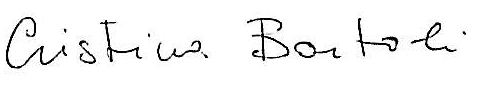 Cristina Bortoli